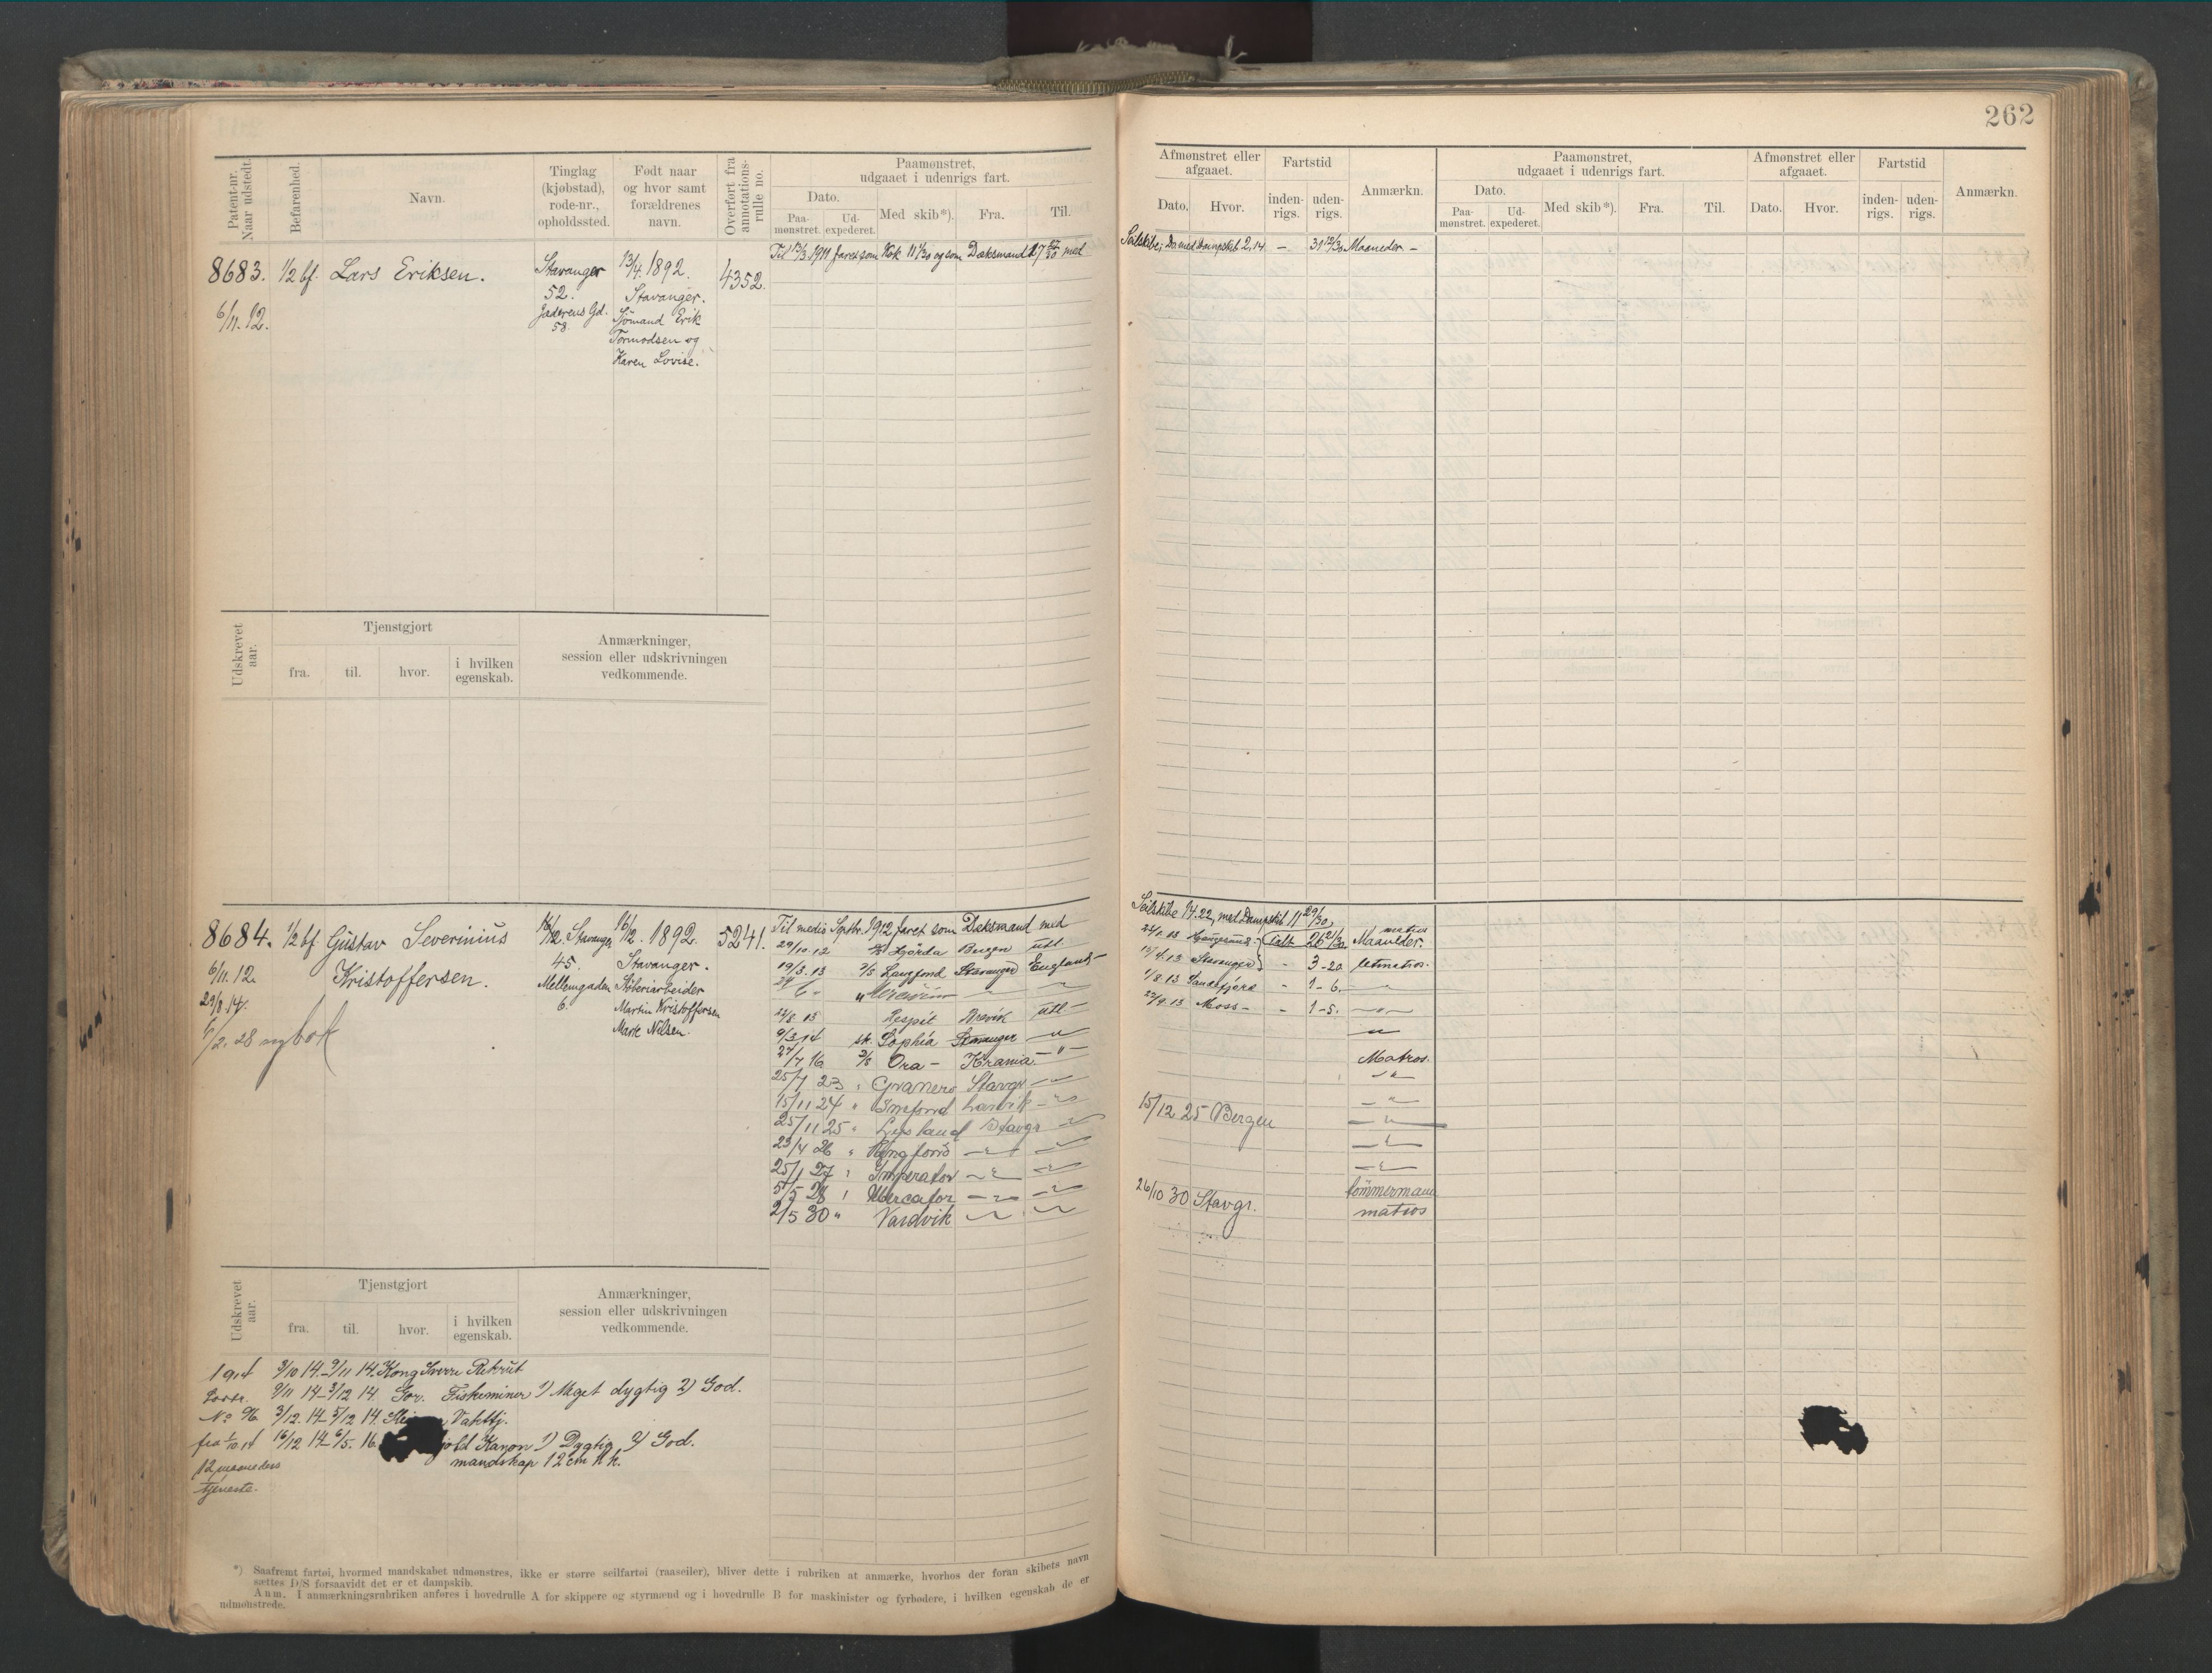 262
Patent-nr. Naar udstedt. Befarenhed. Navn. Tinglag (kjøbstad), rode-nr., opholdssted. Født naar og hvor samt forældrenes navn. Overført fra annotations-rulle no. Paamønstret, udgaaet i udenrigs fart.
Dato. Paa-mønstret. Ud-expederet. Med skib*). Fra. Til.
Afmønstret eller afgaaet. Dato. Hvor. Fartstid inden-rigs. uden-rigs. Anmærkn.
Paamønstret, udgaaet i udenrigs fart. Dato. Paa-mønstret. Ud-expederet. Med skib*). Fra. Til.
Afmønstret eller afgaaet. Dato. Hvor. Fartstid inden-rigs. uden-rigs. Anmærkn.
8683. 1/2 bf. Lars Eriksen.
6/11. 12.
Stavanger
52.
Jæderens Gd.
58.
13/4. 1892.
Stavanger.
Sjömand Erik
Tormodsen og
Karen Lovise.
4352.
1911 faret som Kok 11 1/30 og som Dæksmand 27/30 med
Seilskibe; Do. med Dampskib 2,14 — 31 12/30 Maaneder —
Udskrevet aar. Tjenstgjort fra. til. hvor. i hvilken egenskab. Anmærkninger, session eller udskrivningen vedkommende.
8684. 1/2 bf. Gustav Severinius
Kristoffersen.
6/11. 12.
29/8. 14.
/2. 28 ny bok
16/12. Stavanger
45.
Mellemgaden
6.
16/12. 1892.
Stavanger.
Martin Kristoffersen
Marie Nilsen.
5241.
Til medio Septbr. 1912 faret som Dæksmand med
Seilskibe 14.22, med Dampskib 11 29/30,
29/10. 12 Bergen utl.
Ialt 26 21/30 Maaneder. matros
19/3. 13 Langfond Stavanger England
17/4. 13 Stavanger - 3-20 letmatros.
1/8 13 Sandefjord - 1-6. "
8. 13 Respit Brevik utl
22/9. 13 Moss - - 1-5. "
9/3 14 sk. Sophia Stavanger "
27/7 16 D/S Ora - Krania - " -
Matros.
25/7 23 " Granero Stavgr "
15/11 24 " Larvik "
25/11 25 " Lysland Stavgr "
15/12 25 Bergen "
23/4 26 " Ringfond " "
25/1 27 " Imperator " "
5/5 28 " Mercator " "
tømmermand
2/5 30 " Vardvik " "
26/10 30 Stavgr. matros
Udskrevet aar. Tjenstgjort fra. til. hvor. i hvilken egenskab. Anmærkninger, session eller udskrivningen vedkommende.
1914 3/10 14 - 9/11 14. Kong Sverre Rekrut
9/11 14 - 3/12 14. Gor. Fiskeminer 1) Meget dygtig 2) God.
No 96 3/12. 14 - 5/12 14. Vakttj.
fra 1/10 14 16/12 14 - 6/5. 16. Kanon 1) Dygtig 2) God.
12 maaneders mandskap 12 cm k k.
tjeneste.
*) Saafremt fartøi, hvormed mandskabet udmønstres, ikke er større seilfartøi (raaseiler), bliver dette i rubriken at anmærke, hvorhos der foran skibets navn
sættes D/S forsaavidt det er et dampskib.
Anm. I anmærkningsrubriken anføres i hovedrulle A for skippere og styrmænd og i hovedrulle B for maskinister og fyrbødere, i hvilken egenskab de er
udmønstrede.